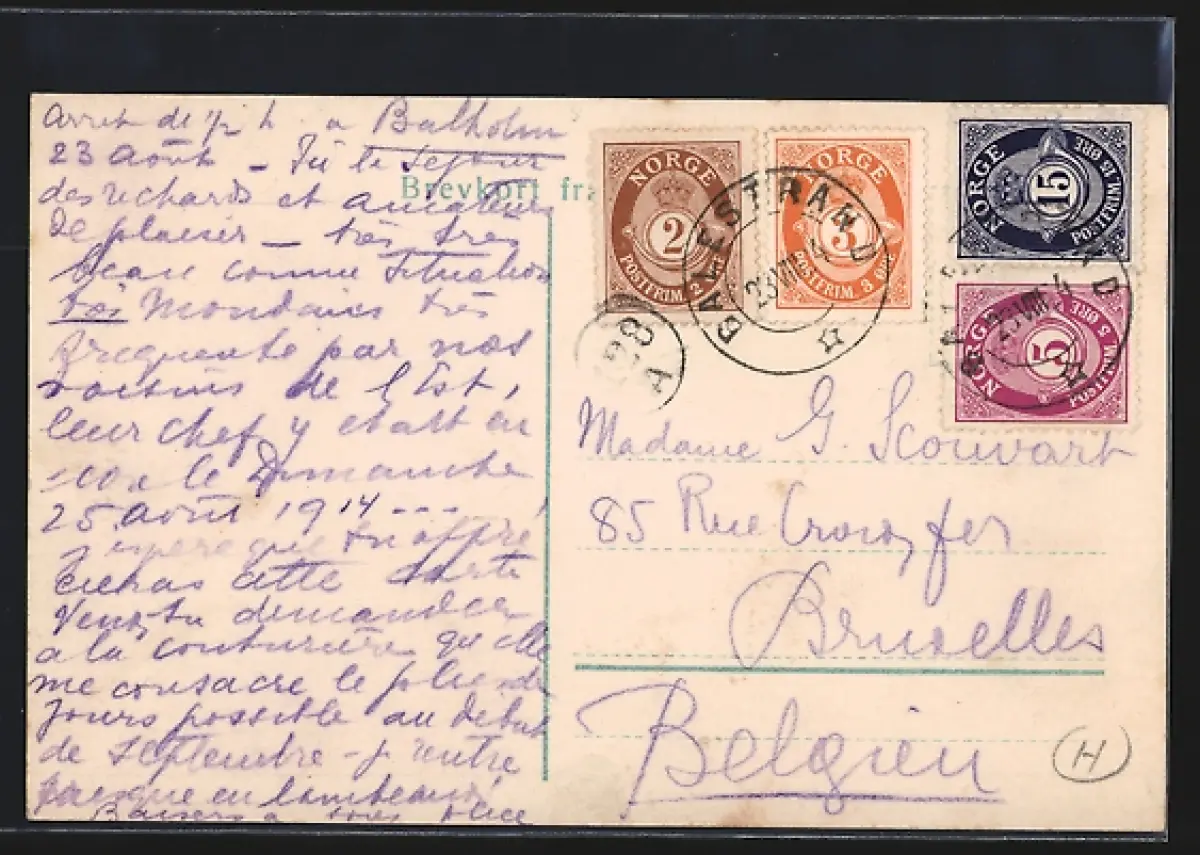 arret de ½ h a Balholm
23 Août - Ici le Sejour
des richards et amateurs
de plaisir - très très
beau comme Situation
très Mondaine très
frequenté par nos
voisins de l'Est,
leur chef y etait en
le Dimanche
25 Août 1914 ---
J'espere que tu
cette carte
Veux tu demander
a la couturière qu'elle
me consacre le plus de
jours possible au debut
de Septembre - je rentre
presque en lambeaux!
Baisers a tous
Brevkort fra
NORGE
2
POSTFRIM. 2 ØRE
NORGE
3
POSTFRIM. 3 ØRE
NORGE
15
POSTFRIM. 15 ØRE
NORGE
5
POSTFRIM. 5 ØRE
BALESTRAND
23 VIII 4
BALESTRAND
23 VIII 4
28
A
Madame G. Scouvart
85 Rue
Bruxelles
Belgien
H